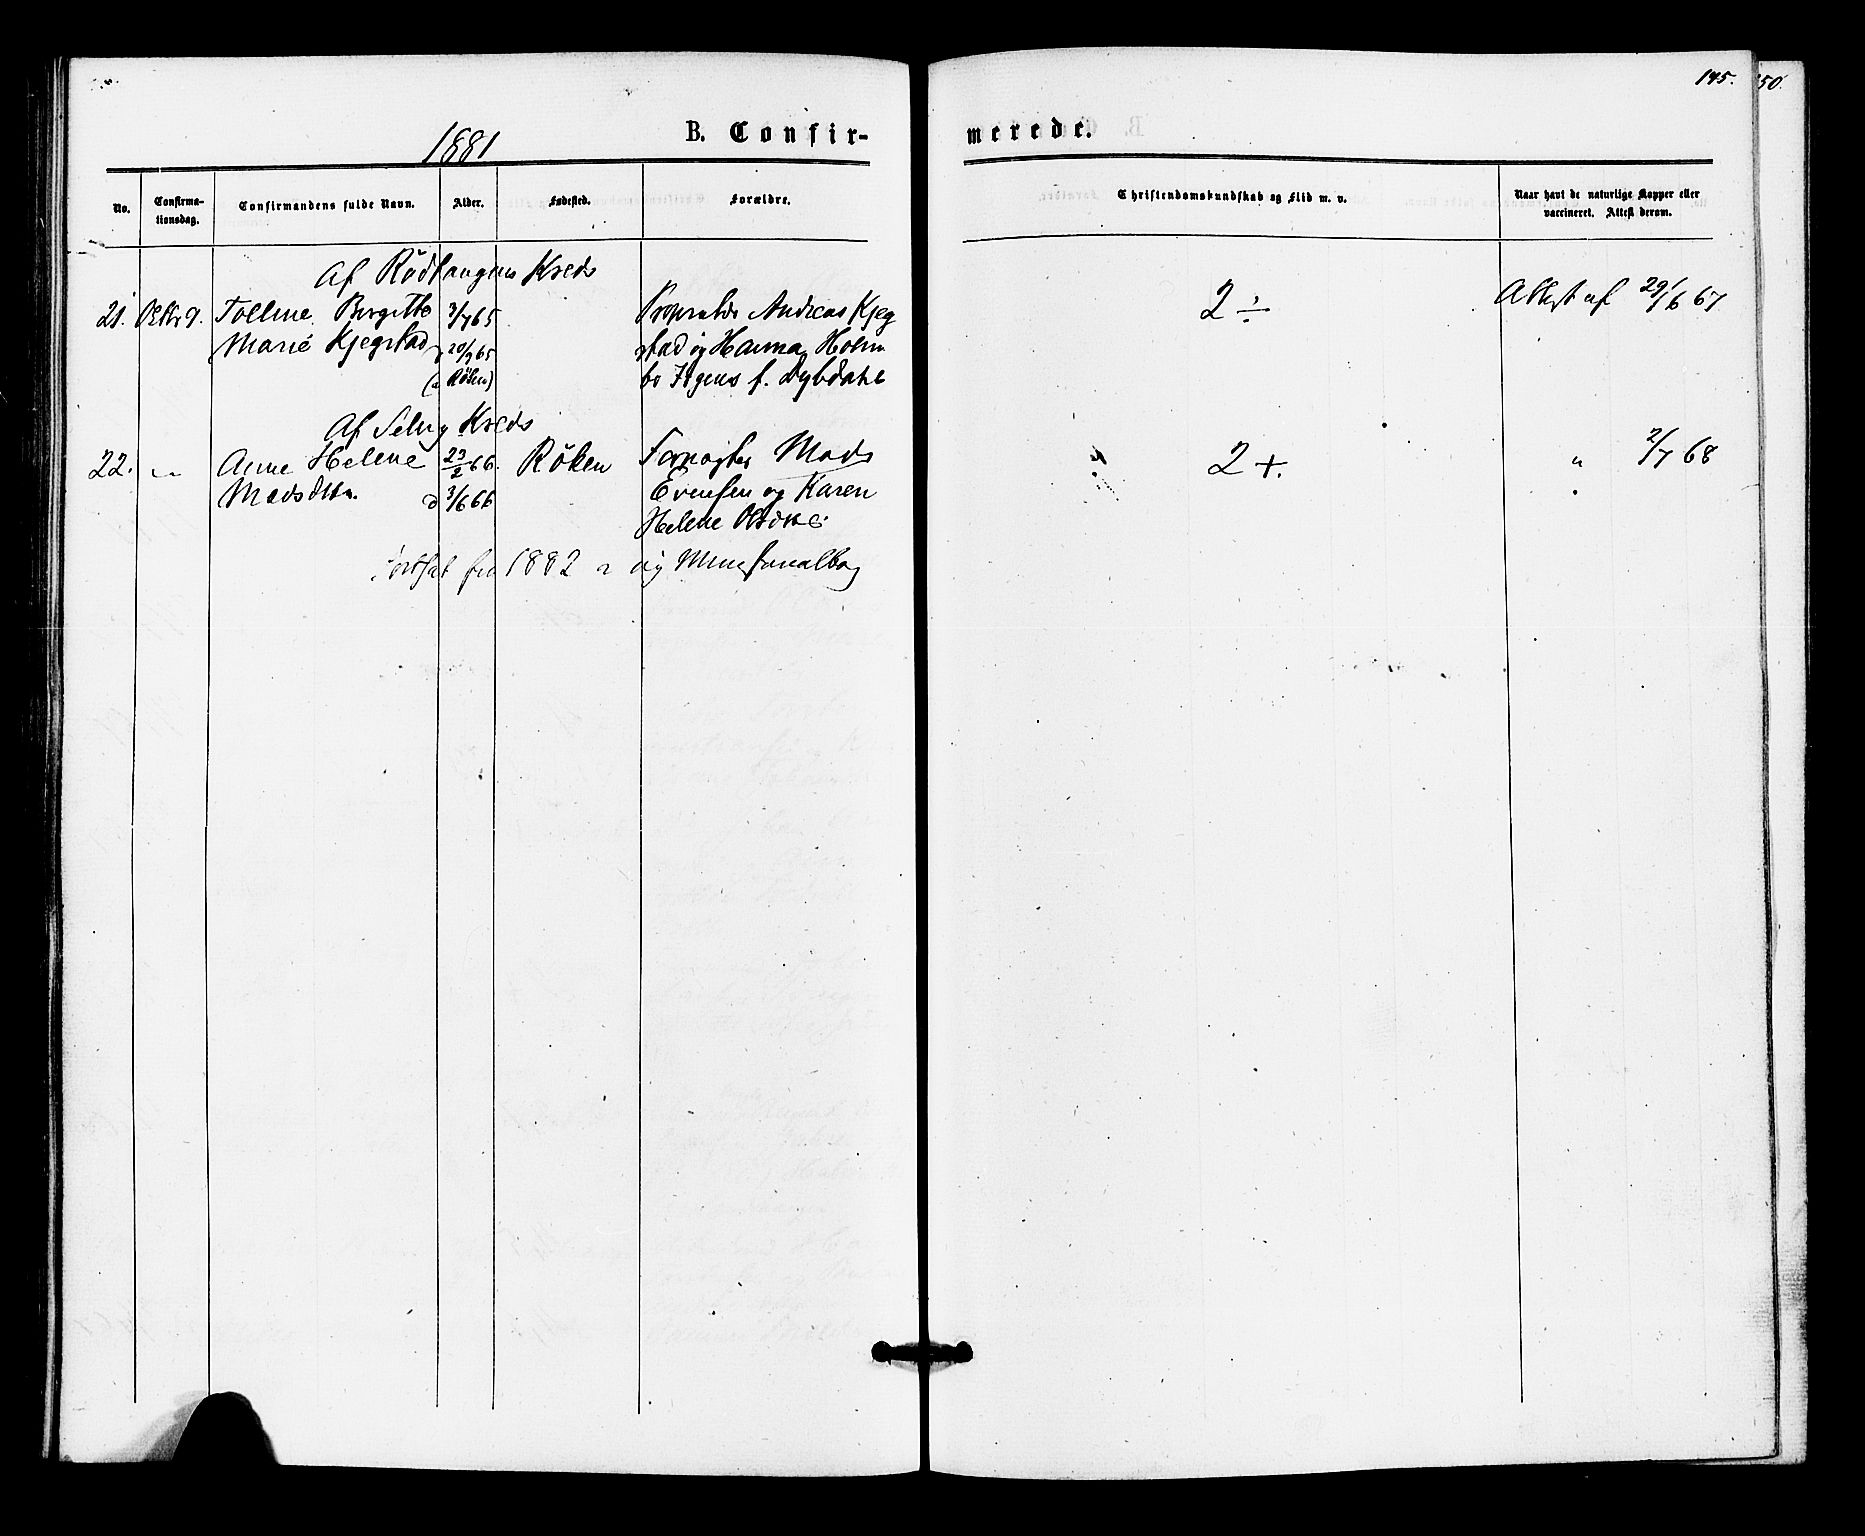 145.
50.
1881
B. Confir-
merede.
No.
Confirma-
tionsdag.
Confirmandens fulde Navn.
Alder.
Fødested.
Forældre.
Christendomskundskab og Flid m. v.
Naar havt de naturlige Kopper eller
vaccineret. Attest derom.
Af Rödtangens Kreds
21. Oktbr 9. Toline Birgitte 3/7 65 Andreas Kjeg 2 ÷ Attest af 29/6 67
Marie Kjegstad 20/7 65 stad og Hanna Holm
Röken) bo f. Dybdahl
Af Kreds
22. " Anne Helene 23/2 66. Röken Mads 2 +. " 2/7 68
Madsdttr. d 3/6 66 Evensen og Karen
Helene Olsdtr.
fortsat fra 1882 i ny